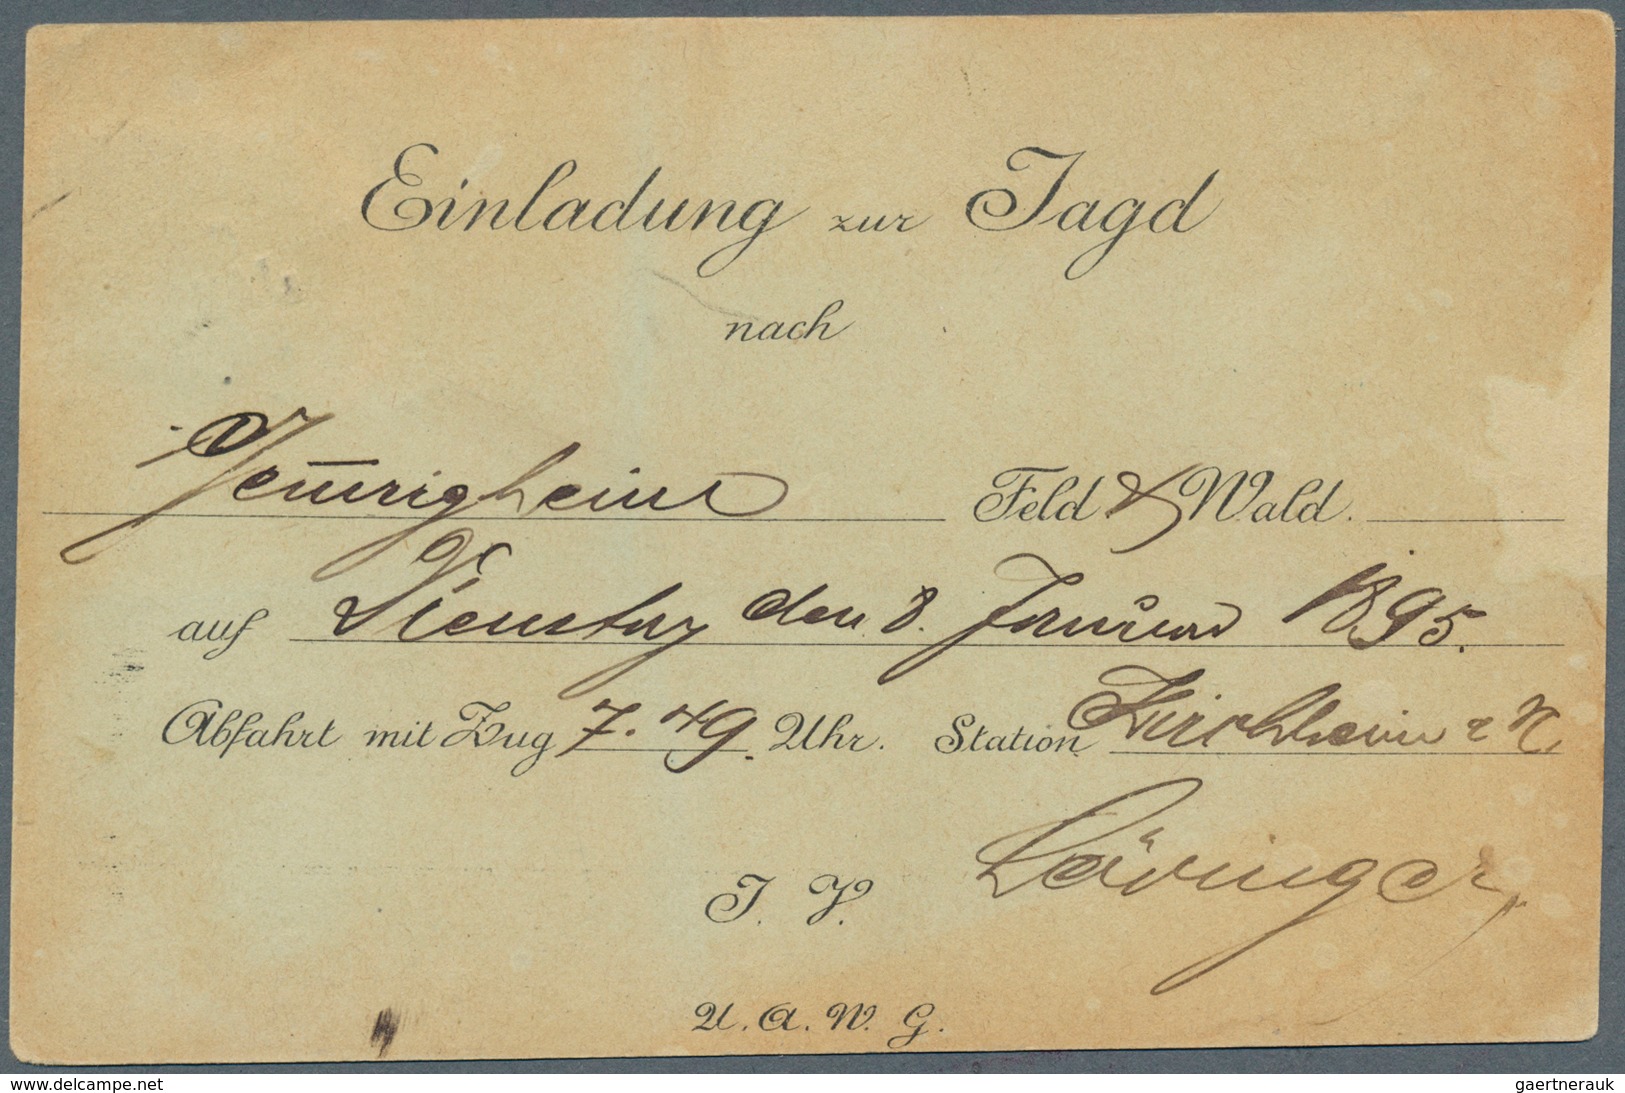 Einladung zur Jagd
nach
Gemmrigheim Feld & Wald.
auf Dienstag den 8. Januar 1895.
Abfahrt mit Zug 7.49 Uhr. Station Kirchheim a N.
J. V.
U. A. W. G.
www.delcampe.net
gaertnerauk